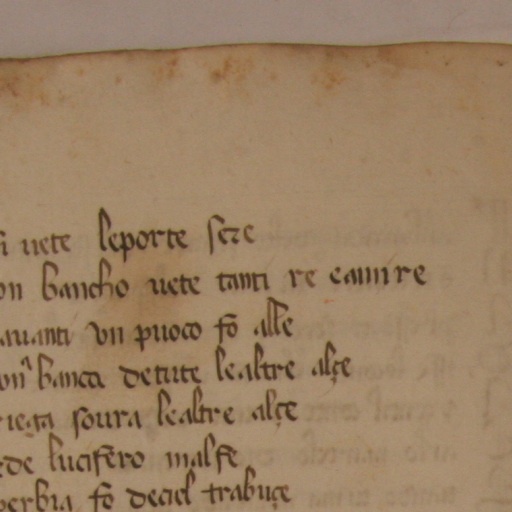 uete leporte sere
on bancho uete tanti re eamire
auanti vn puoco fo alle
banca detute lealtre alçe
riega soura lealtre alçe
ede lucifero malfe
perbia fo deciel trabuçe